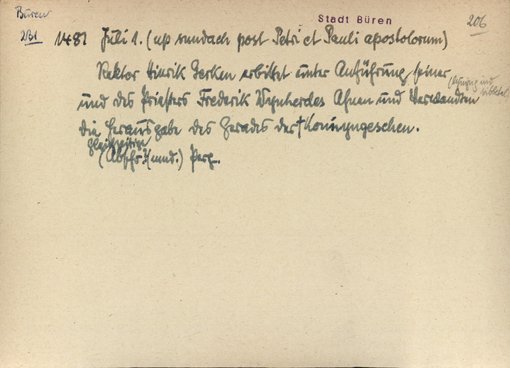 Büren
Stadt Büren
206
2/31
1481 Juli 1. (up sundach post Petri et Pauli apostolorum)
Rektor Hinrik Gerken erbittet unter Anführung seiner
und des Priesters Frederik Wynherdes Ahnen und Verwandten
die Herausgabe des Gerades der † Konnyngeschen.
gleichzeitige
(Abschr.) (mnd.) Perg.